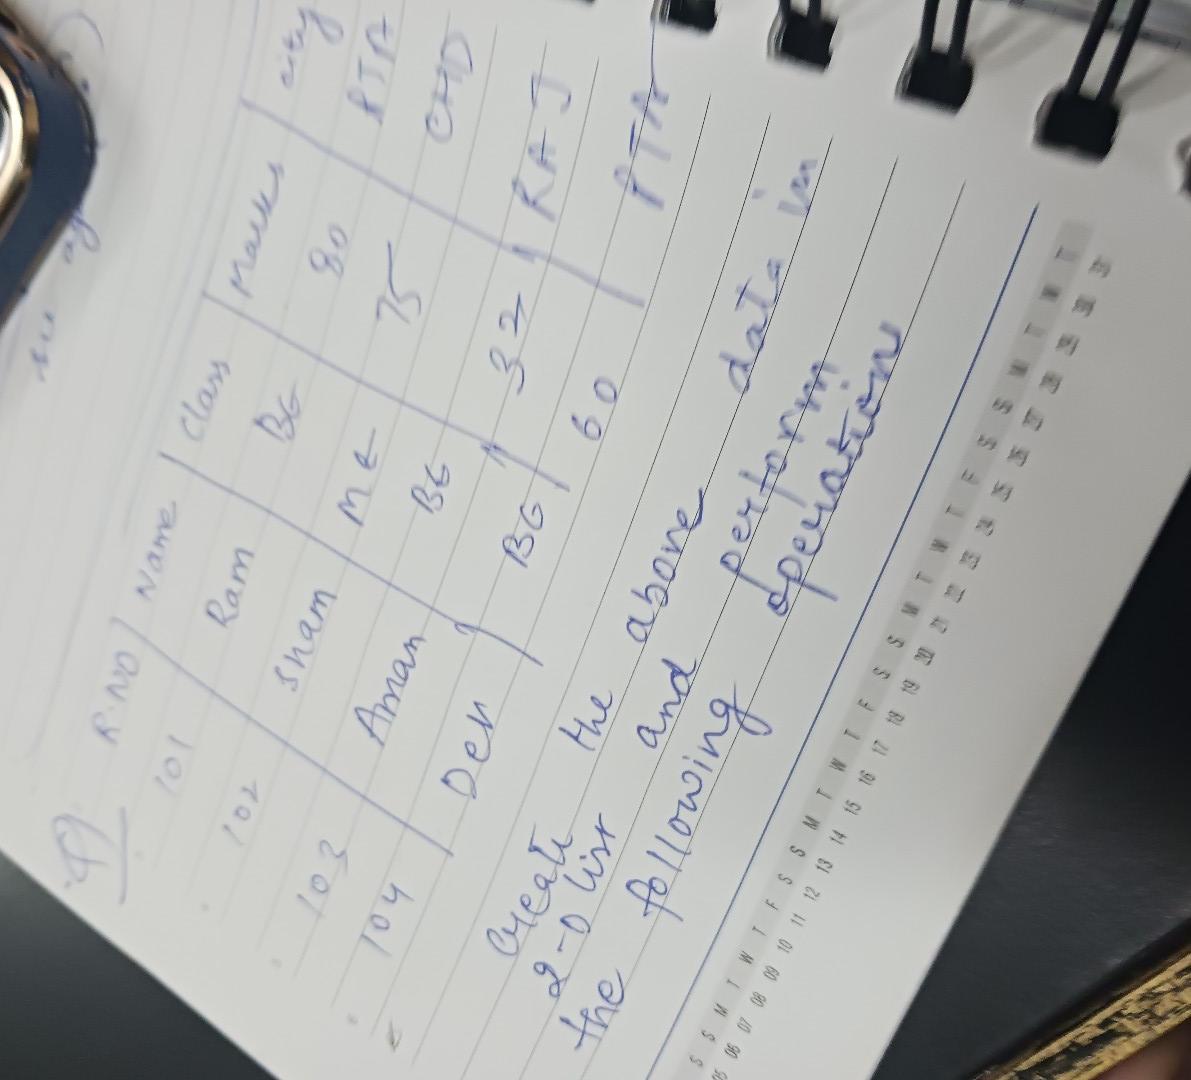 Q)
R.NO Name Class Marks City
101 Ram BG 80 PTA
102 Sham ME 75 CHD
103 Aman BG 32 RAJ
104 Dev BG 60 PTA
Create the above data in
2-D list and perform
the following operation
S S M T W T F S S M T W T F S S M T W T F S S M T W T
05 06 07 08 09 10 11 12 13 14 15 16 17 18 19 20 21 22 23 24 25 26 27 28 29 30 31